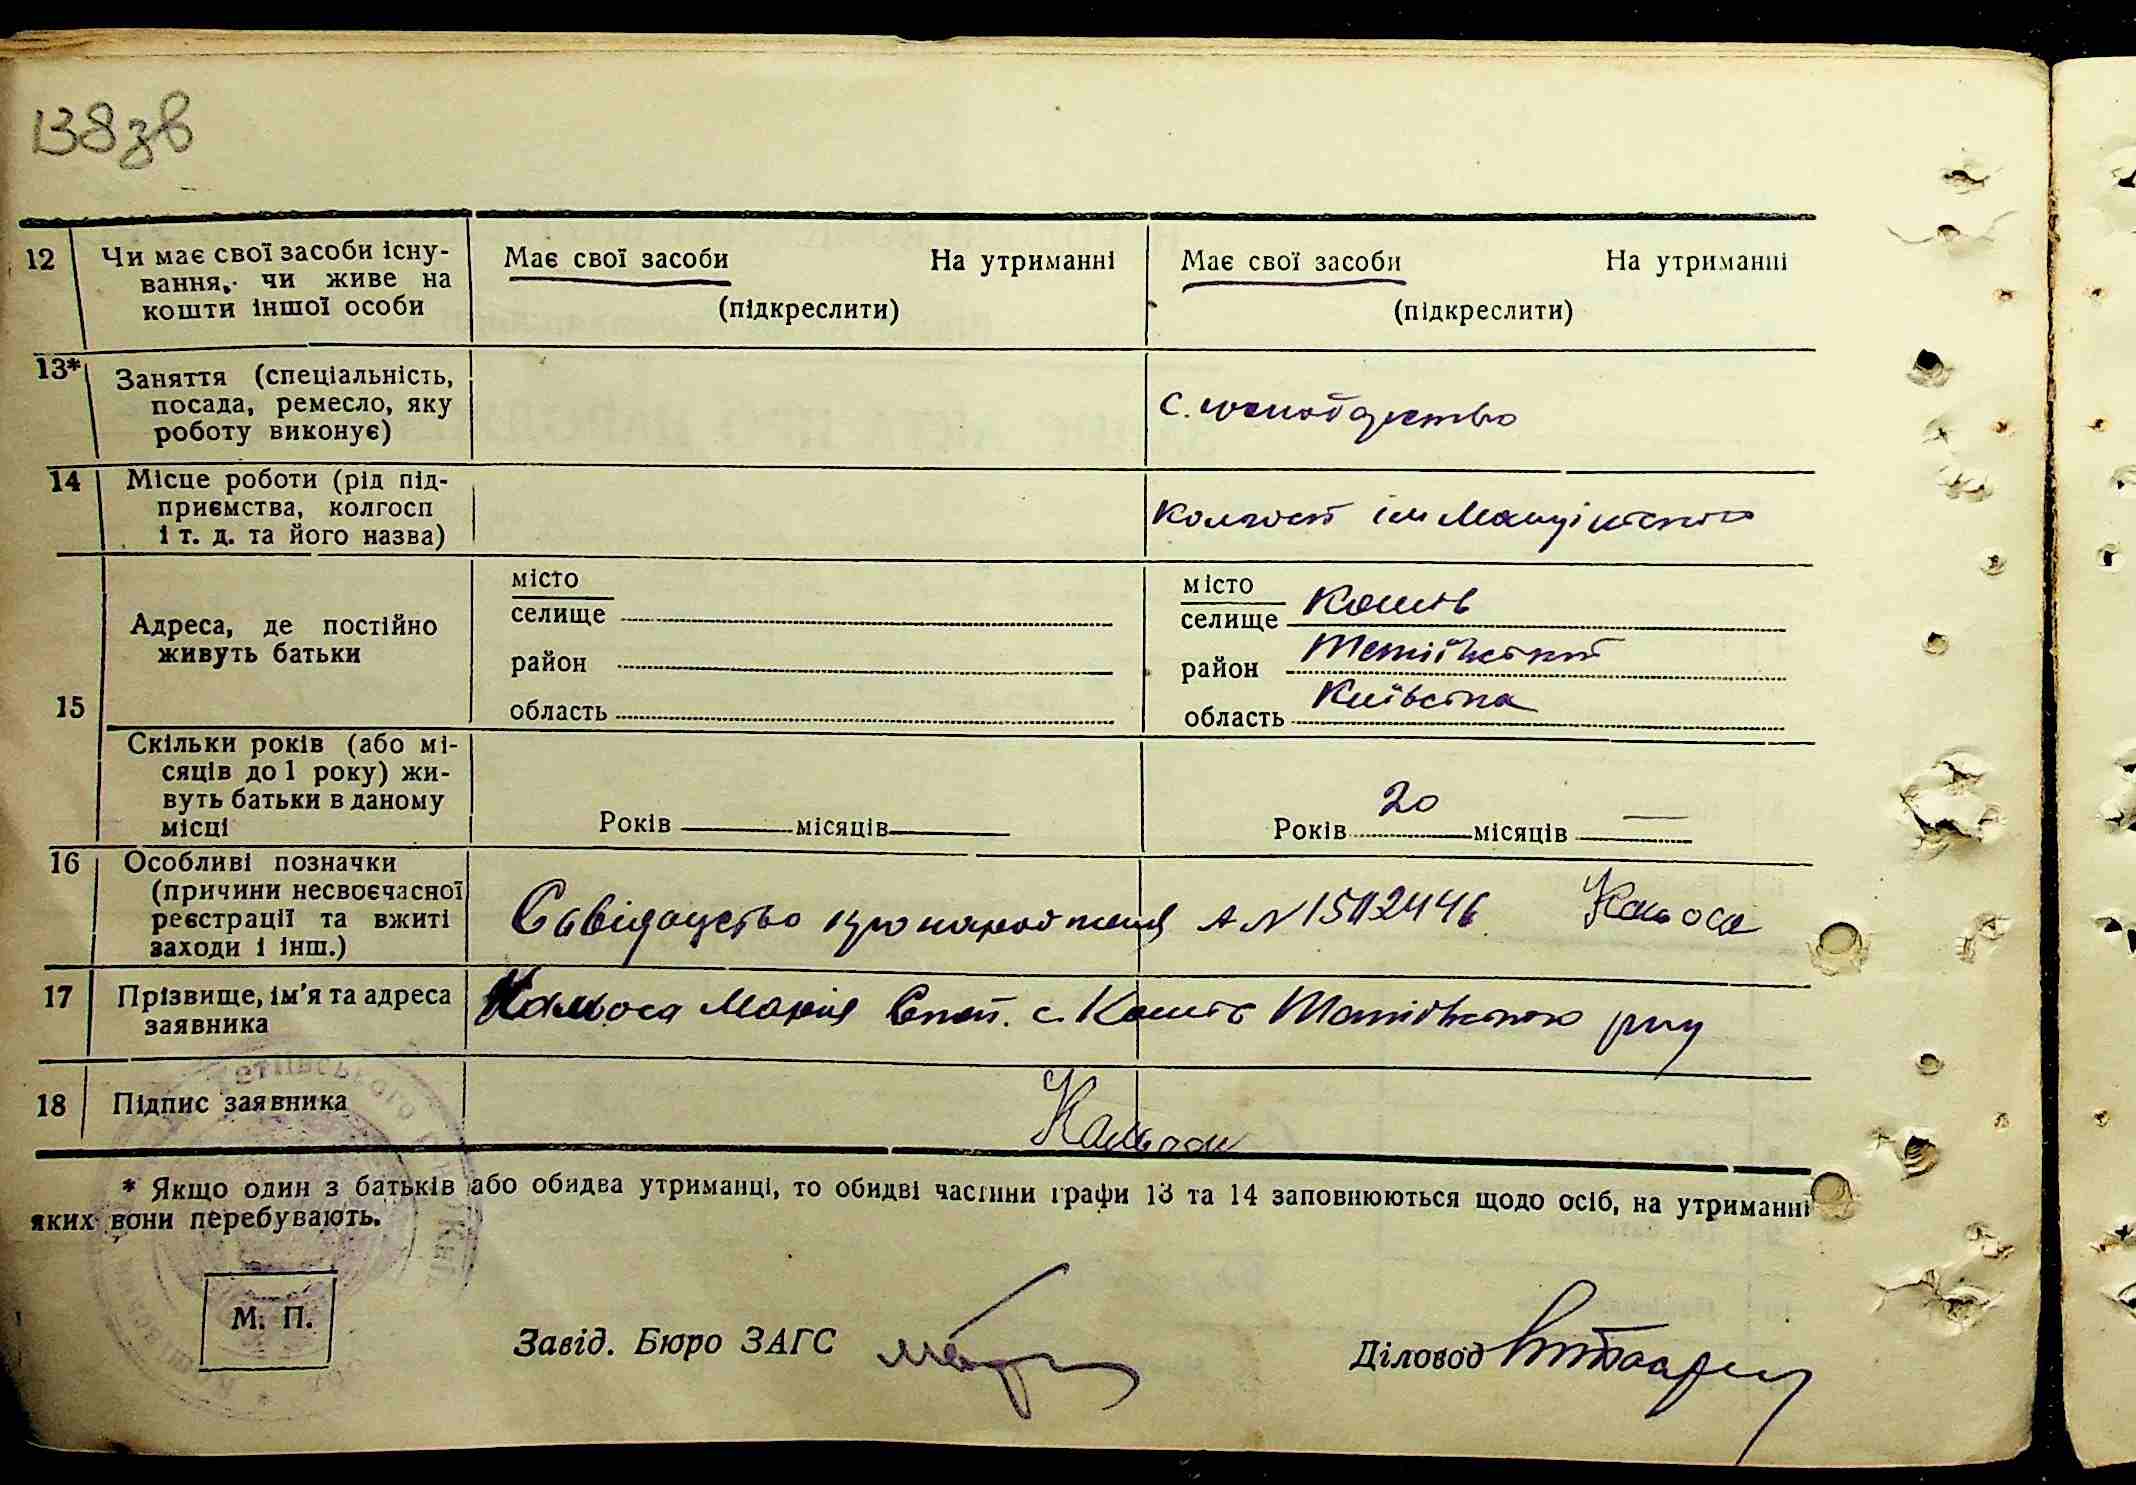 138зв
12 Чи має свої засоби існу-
вання, чи живе на
кошти іншої особи
Має свої засоби На утриманні
(підкреслити)
Має свої засоби На утриманні
(підкреслити)
13* Заняття (спеціальність,
посада, ремесло, яку
роботу виконує)
с.
14 Місце роботи (рід під-
приємства, колгосп
і т. д. та його назва)
колгосп ім
15 Адреса, де постійно
живуть батьки
місто
селище
район
область
місто
селище Кошів
район Тетіївський
область Київська
Скільки років (або мі-
сяців до 1 року) жи-
вуть батьки в даному
місці
Років місяців
Років 20 місяців —
16 Особливі позначки
(причини несвоєчасної
реєстрації та вжиті
заходи і інш.)
Свідоцтво про народження А N 1512446 Кальоса
17 Прізвище, ім'я та адреса
заявника
Кальоса Марія Степ. с. Кошів Тетіївського р-ну
18 Підпис заявника
* Якщо один з батьків або обидва утриманці, то обидві частини графи 13 та 14 заповнюються щодо осіб, на утриманні
яких вони перебувають.
М. П.
Завід. Бюро ЗАГС
Діловод